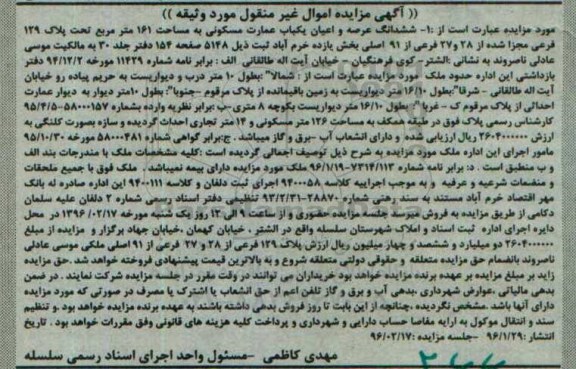 (( آگهی مزایده اموال غیر منقول مورد وثیقه ))
مورد مزایده عبارت است از :۱- ششدانگ عرصه و اعیان یکباب عمارت مسکونی به مساحت ۱۶۱ متر مربع تحت پلاک ۱۳۹
فرعی مجزا شده از ۲۸ و۲۷ فرعی از ۹۱ اصلی بخش یازده خرم آباد ثبت ذیل ۵۱۴۸ صفحه ۱۵۴ دفتر جلد ۳۰ به مالکیت موسی
عادلی ناصروند به نشانی :الشتر- کوی فرهنگیان - خیابان آیت اله طالقانی الف : برابر نامه شماره ۱۱۴۲۹ مورخه ۹۴/۱۲/۲ دفتر
بازداشتی این اداره حدود ملک مورد مزایده عبارت است از : شمالا" :بطول ۱۰ متر درب و دیواریست به حریم پیاده رو خیابان
آیت اله طالقانی - شرقا":بطول ۱۶/۱۰ متر دیواریست به زمین باقیمانده از پلاک مرقوم -جنوبا": بطول ۱۰متر دیوار به دیوار عمارت
احداثی از پلاک مرقوم ک - غربا" : بطول ۱۶/۱۰ متر دیواریست بکوچه ۸ متری-ب: برابر نظریه وارده بشماره ۵۸۰۰۰۱۵۷-۹۵/۴/۵
کارشناس رسمی پلاک فوق در طبقه همکف به مساحت ۱۲۶ متر مسکونی و ۱۴ متر تجاری احداث گردیده و سازه بصورت کلنگی به
ارزش ۲۶۰۴۰۰۰۰۰۰ ریال ارزیابی شده و دارای انشعاب آب -برق و گاز میباشد . ج:برابر گواهی شماره ۵۸۰۰۰۴۸۱ مورخه ۹۵/۱۰/۳۰
مامور اجرای این اداره ملک مورد مزایده به شرح ذیل توصیف اجمالی گردیده است :کلیه مشخصات ملک با مندرجات بند الف
و ب منطبق است . د: برابر نامه شماره ۷۳۱۴/۱۱۳-۹۶/۱/۱۹ ملک مورد مزایده دارای بیمه نمیباشد . ملک فوق با جمیع ملحقات
و منضمات شرعیه و عرفیه و به موجب اجراییه کلاسه ۹۴۰۰۰۵۸ اجرای ثبت دلفان و کلاسه ۹۴۰۰۱۱۱ این اداره صادره له بانک
مهر اقتصاد خرم آباد مستند به سند رهنی شماره ۲۸۸۷۰-۹۳/۲/۳۱ تنظیمی دفتر اسناد رسمی شماره ۲ دلفان علیه سلمان
دکامی از طریق مزایده به فروش میرسد جلسه مزایده حضوری و از ساعت ۹ الی ۱۲ روز یک شنبه مورخه ۱۳۹۶/۰۲/۱۷ در محل
دایره اجرای اداره ثبت اسناد و املاک شهرستان سلسله واقع در الشتر ، خیابان کهمان ،خیابان جهاد برگزار و مزایده از مبلغ
۲۶۰۴۰۰۰۰۰۰ دو میلیارد و ششصد و چهار میلیون ریال ارزش پلاک ۱۳۹ فرعی از ۲۸ و ۲۷ فرعی از ۹۱ اصلی ملکی موسی عادلی
ناصروند بانضمام حق مزایده متعلقه و حقوقی دولتی متعلقه شروع و به بالاترین قیمت پیشنهادی فروخته خواهد شد .حق مزایده
زاید بر مبلغ مزایده بر عهده برنده مزایده خواهد بود خریداران می توانند در وقت مقرر در جلسه مزایده شرکت نمایند . در ضمن
بدهی مالیاتی ،عوارض شهرداری ،بدهی آب و برق و گاز تلفن اعم از حق انشعاب یا اشتراک یا مصرف در صورتی که مورد مزایده
دارای آنها باشد .مشخص نگردیده ،چنانچه از این بابت تا روز فروش بدهی داشته باشند به عهده برنده مزایده خواهد بود .و تنظیم
سند و انتقال موکول به ارایه مفاصا حساب دارایی و شهرداری و پرداخت کلیه هزینه های قانونی وفق مقررات خواهد بود . تاریخ
انتشار :۹۶/۱/۲۹ -جلسه مزایده :۹۶/۰۲/۱۷
مهدی کاظمی -مسئول واحد اجرای اسناد رسمی سلسله